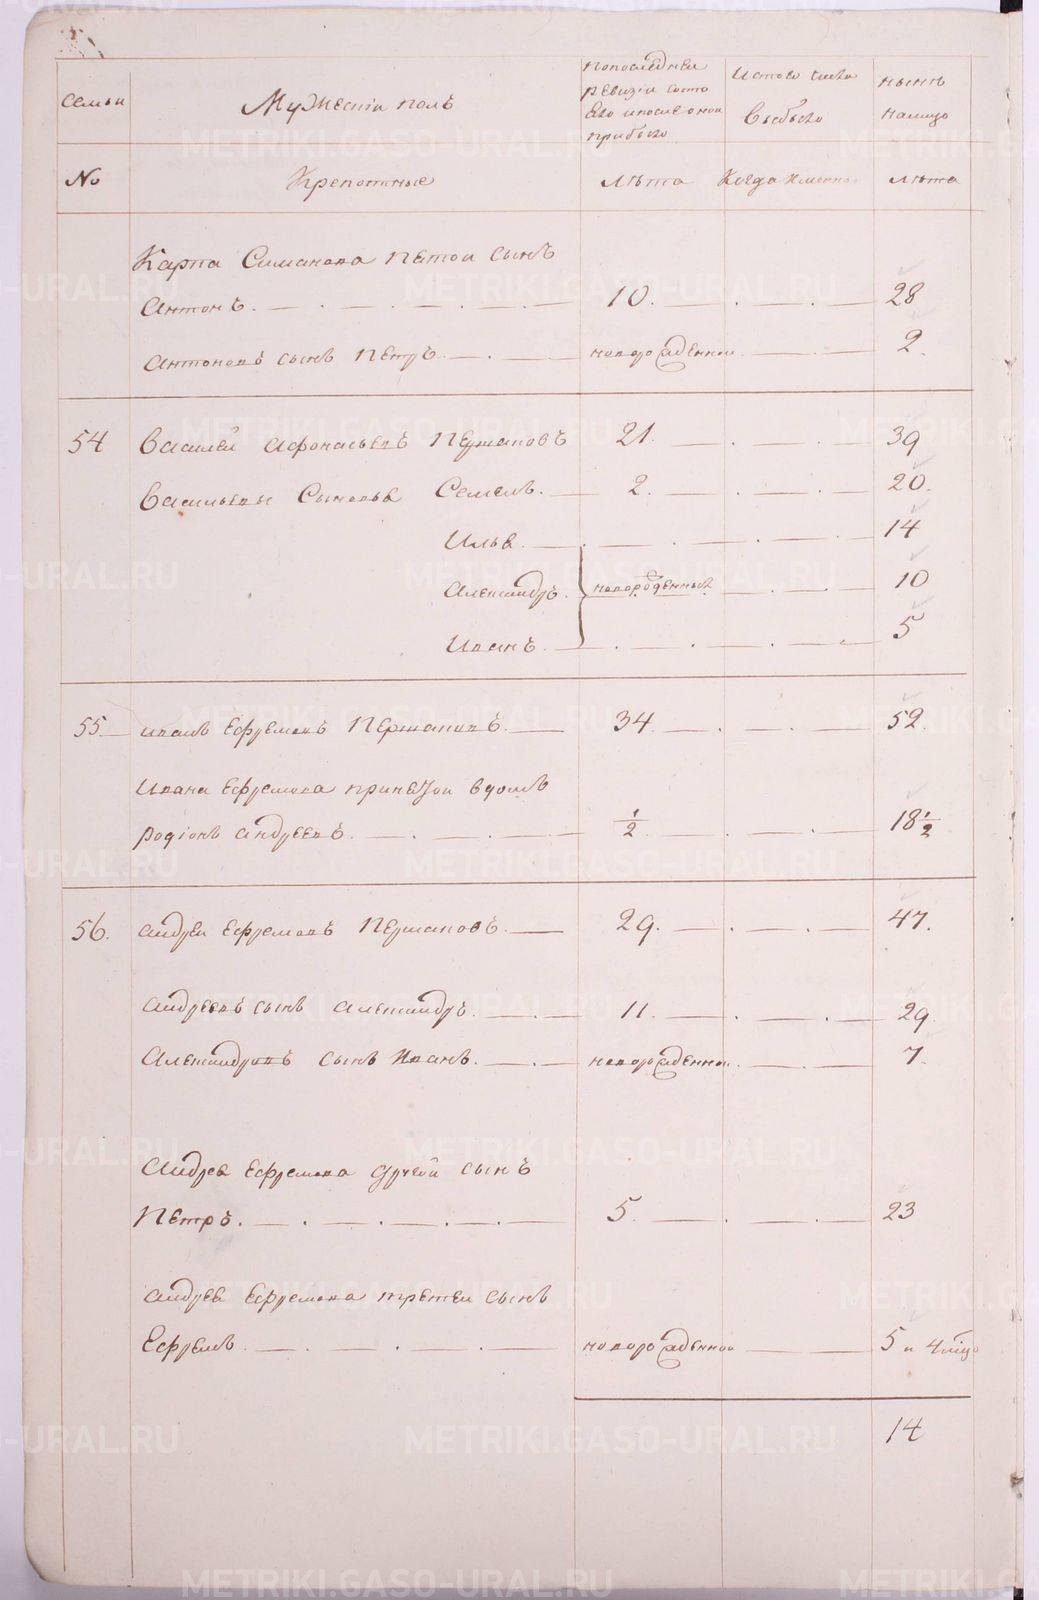 Семьи
Мужескій полъ
Попоследнеи ревизіи состо яло ипослеоной прибыло
Истого числа выбыло
Нынѣ налицо
No
Крепостные
Лѣта
Когда Именно
Лѣта
Карпа Симанова Пятои сынъ
Антонъ. 10. 28
Антоновъ сынъ Петръ. новорожденнои 2.
54 Василей Афонасьевъ Першановъ 21. 39
Васильевы Сыновья Семенъ. 2. 20.
Илья 14
Александръ. новорожденныя 10
Иванъ. 5
55 иванъ Ефремовъ Першановъ. 34. 52.
Ивана Ефремова принятои вдомъ
родіонъ андреевъ. 1/2 18 1/2
56. андреи Ефремовъ Першановъ. 29. 47.
андреевъ сынъ Александръ. 11. 29
Александровъ сынъ Иванъ. новорожденнои. 7.
андрея Ефремова другой сынъ
Петръ. 5. 23
андрея Ефремова третеи сынъ
Ефремъ. новорожденнои 5 и 4 мѣцо
14
METRIKI.GASO-URAL.RU